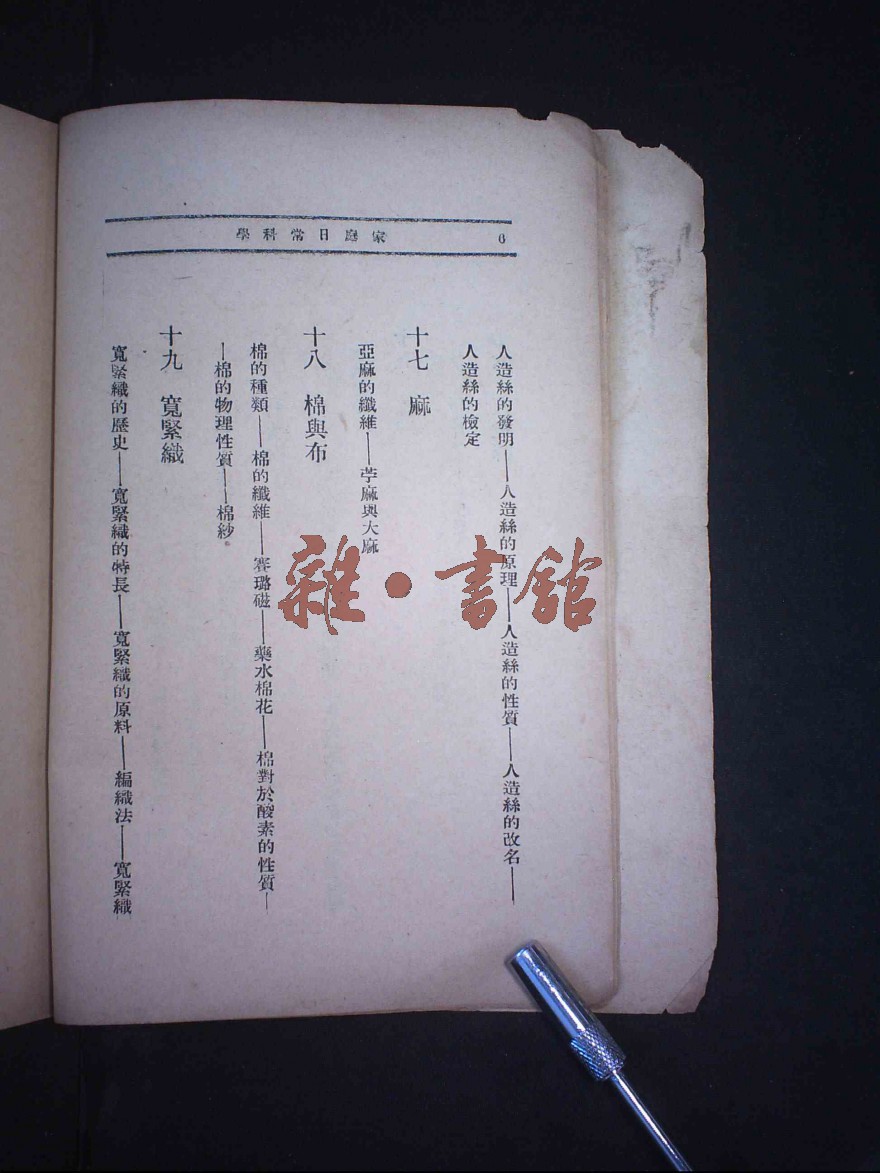 6
家庭日常科學
人造絲的發明——人造絲的原理——人造絲的性質——人造絲的改名——
人造絲的檢定
十七 麻
亞麻的纖維——苧麻與大麻
十八 棉與布
棉的種類——棉的纖維——賽璐磁——藥水棉花——棉對於酸素的性質—
—棉的物理性質——棉紗。
十九 寬緊織
寬緊織的歷史——寬緊織的特長——寬緊織的原料——編織法——寬緊織
雜·書館